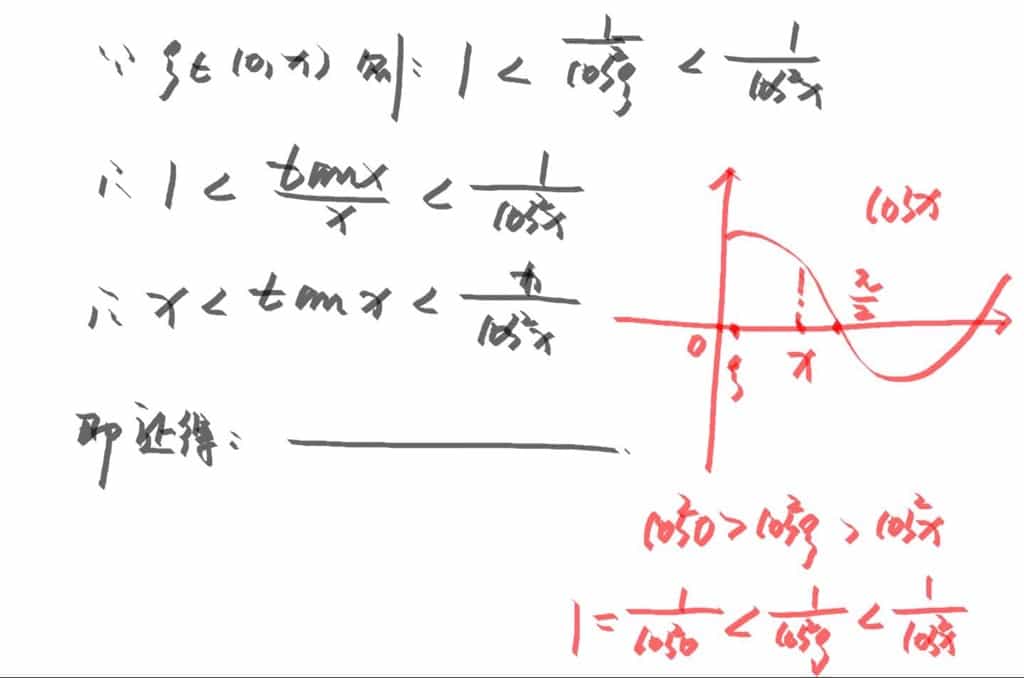 ∵ ξ∈(0,x) 则: 1 < 1/cos²ξ < 1/cos²x
∴ 1 < tanx/x < 1/cos²x
∴ x < tanx < x/cos²x
即证得:
cosx
π/2
0 ξ x
cos²0 > cos²ξ > cos²x
1 = 1/cos²0 < 1/cos²ξ < 1/cos²x